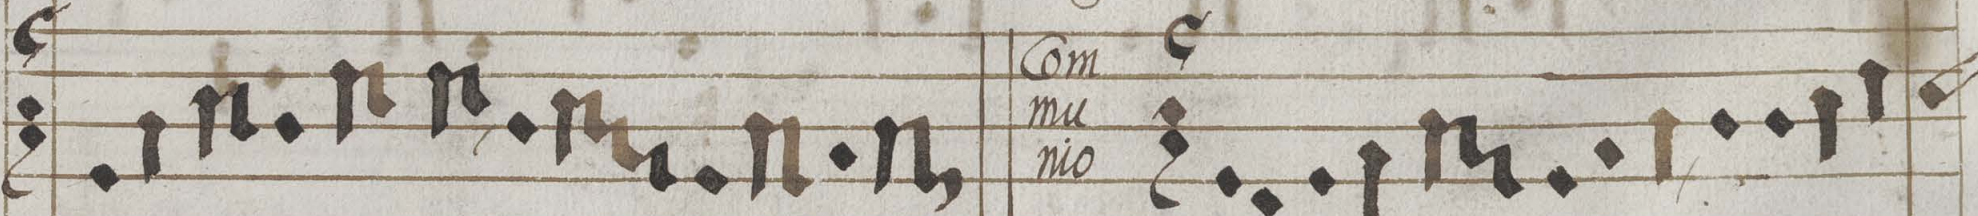 Com
mu
nio